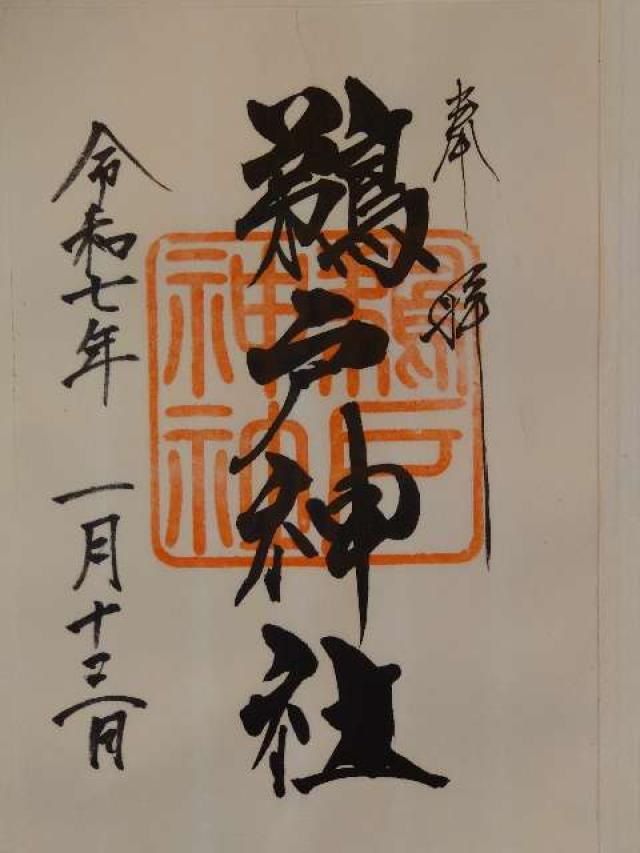 奉拝
鵜戸神社
令和七年 一月十三日
鵜戸
神社